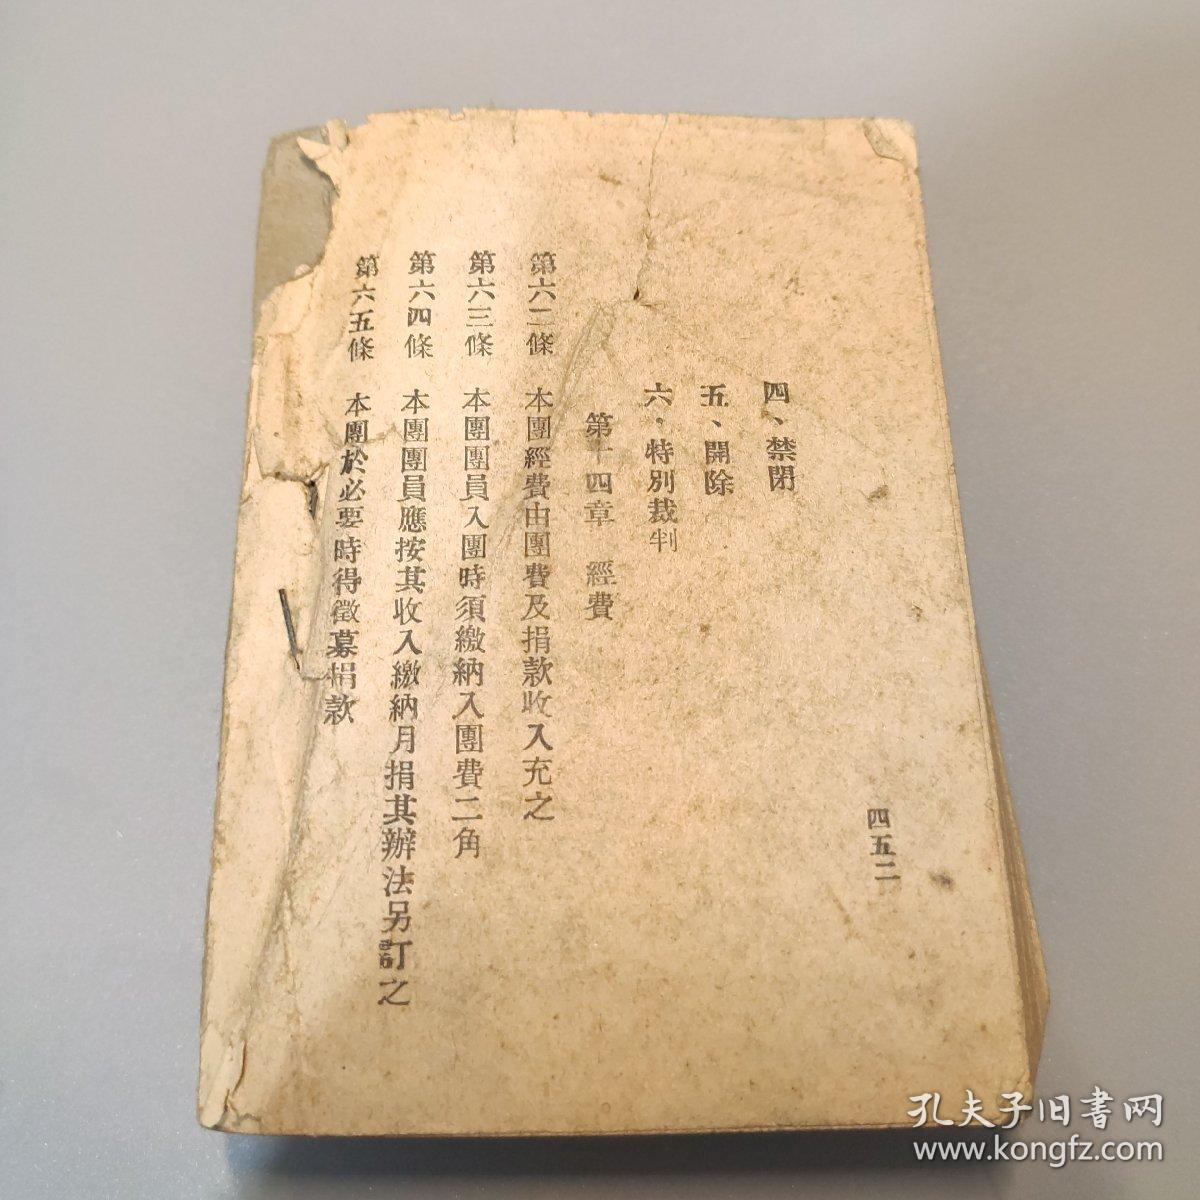 四、禁閉
五、開除
六、特別裁判
第十四章 經費
第六二條 本團經費由團費及捐款收入充之
第六三條 本團團員入團時須繳納入團費二角
第六四條 本團團員應按其收入繳納月捐其辦法另訂之
第六五條 本團於必要時得徵募捐款
四五二
孔夫子旧書网
www.kongfz.com